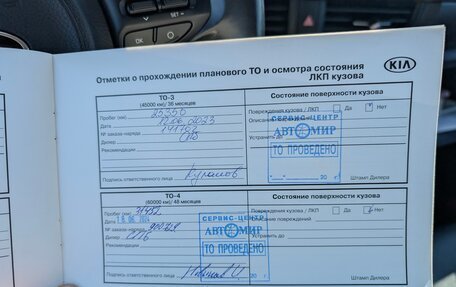 SET
OK
Отметки о прохождении планового ТО и осмотра состояния
ЛКП кузова
KIA
ТО-3
(45000 км)/ 36 месяцев
Состояние поверхности кузова
Пробег (км) 25356
Дата 17.06.2023
№ заказа-наряда
Дилер
Рекомендации
Подпись ответственного лица
Повреждения кузова / ЛКП Да Нет
Описание
Устранить до
СЕРВИС-ЦЕНТР
АВТОМИР
ТО ПРОВЕДЕНО
20 г.
Штамп Дилера
ТО-4
(60000 км)/ 48 месяцев
Состояние поверхности кузова
Пробег (км)
Дата 16.06.2024
№ заказа-наряда
Дилер
Рекомендации
Подпись ответственного лица
Повреждения кузова / ЛКП Да Нет
Описание повреждений
Устранить до
СЕРВИС-ЦЕНТР
АВТОМИР
ТО ПРОВЕДЕНО
20 г.
Штамп Дилера